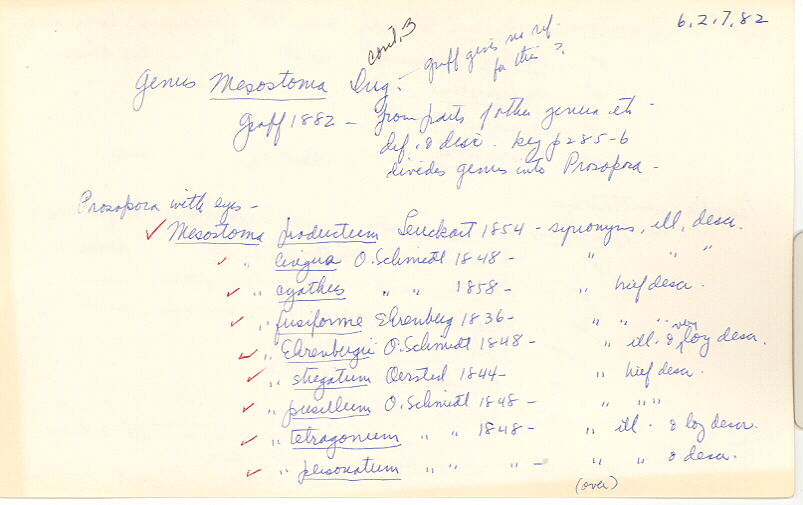 6.2.7.82
cont. 3
Genus Mesostoma Dug. - graff gives no ref.
for this ?
Graff 1882 - from parts of other genera etc -
def. & desc. key p 285-6
divides genus into Prosopora -
Prosopora with eyes -
✓ Mesostoma productum Leuckart 1854 - synonyms, ill, descr.
✓ " lingua O. Schmidt 1848 - " " "
✓ " cyathus " " 1858 - " brief descr.
✓ " fusiforme Ehrenberg 1836 - " " "
✓ " Ehrenbergii O. Schmidt 1848 - " ill. & very log descr.
✓ " strigatum Oersted 1844 - " brief descr.
✓ " pusillum O. Schmidt 1848 - " " "
✓ " tetragonum " " 1848 - " ill. & log descr.
✓ " personatum " " " - " " & descr.
(over)